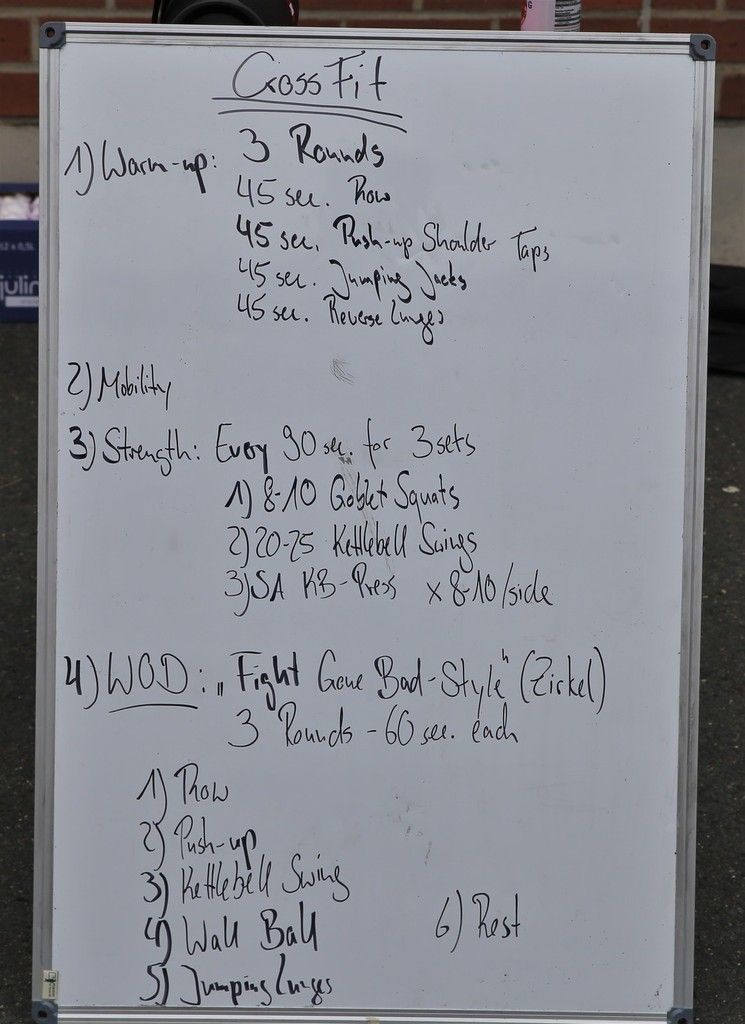 CrossFit
1) Warm-up: 3 Rounds
45 sec. Row
45 sec. Push-up Shoulder Taps
45 sec. Jumping Jacks
45 sec. Reverse Lunges
2) Mobility
3) Strength: Every 90 sec. for 3 sets
1) 8-10 Goblet Squats
2) 20-25 Kettlebell Swings
3) SA KB-Press x 8-10/side
4) WOD: „Fight Gone Bad-Style" (Zirkel)
3 Rounds - 60 sec. each
1) Row
2) Push-up
3) Kettlebell Swing
4) Wall Ball
5) Jumping Lunges
6) Rest